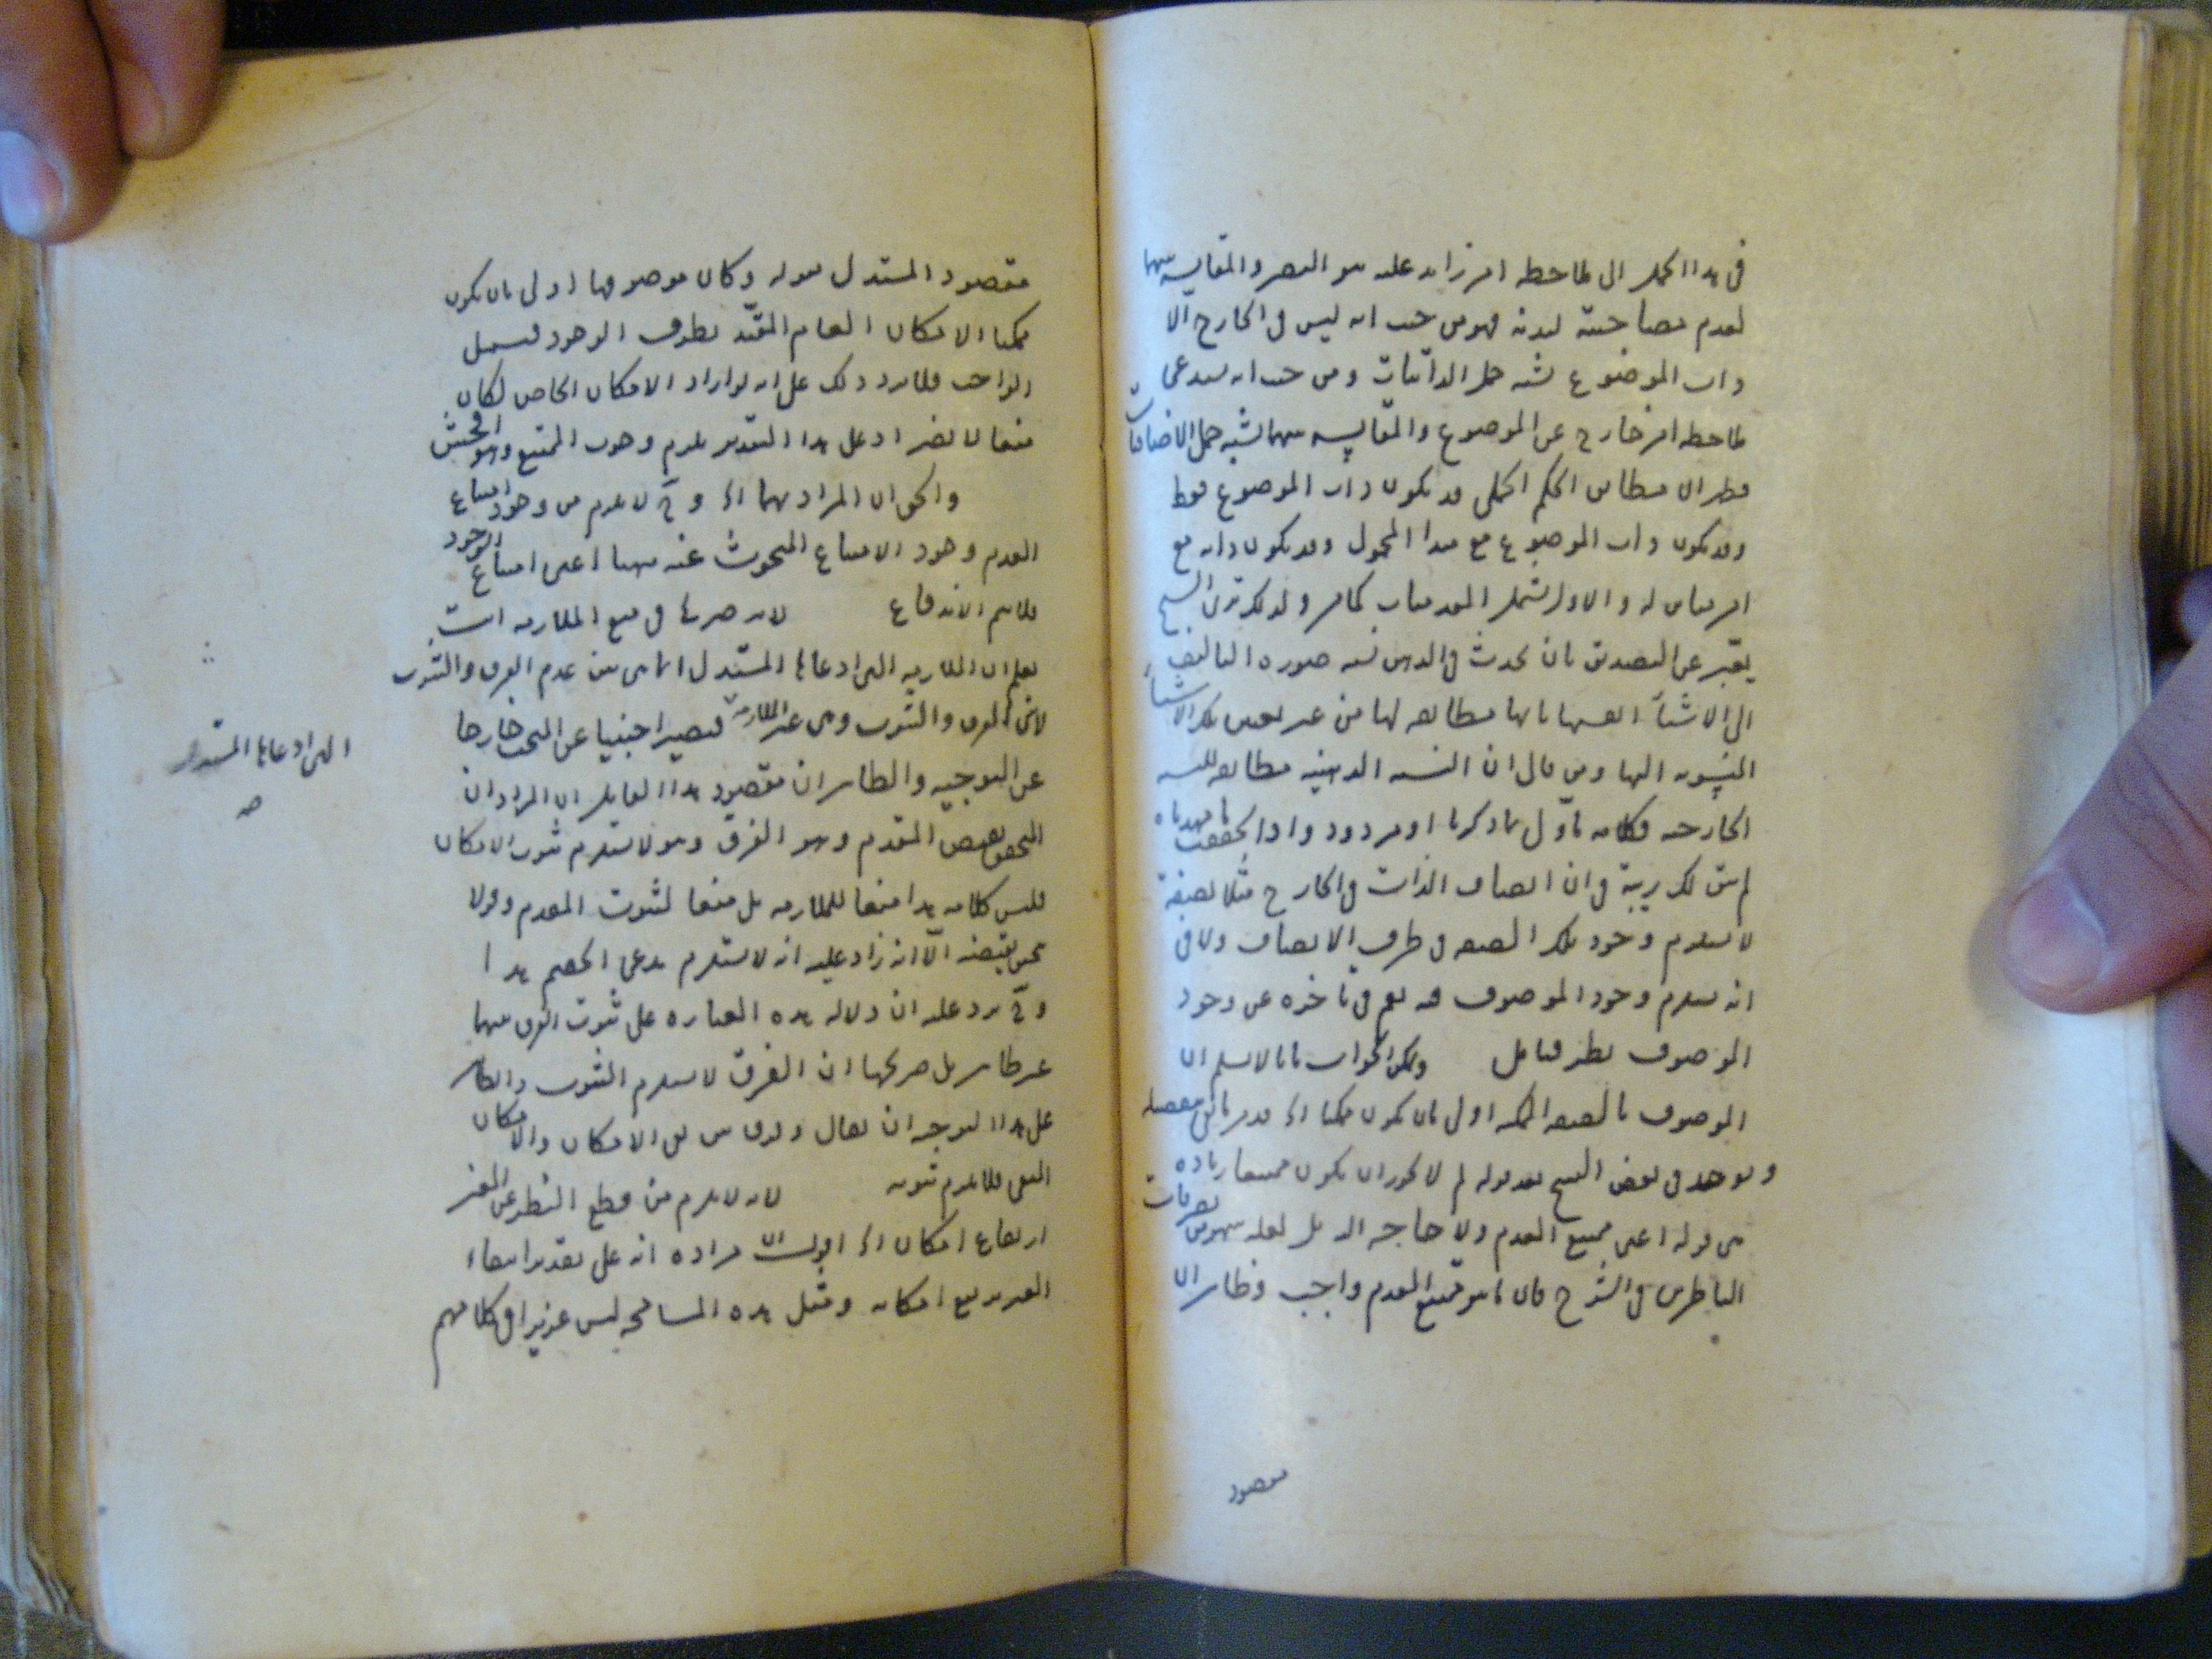 في هذا الحمل الى ملاحظة امر زائد عليه هو البصر والمقايسة بينهما
لعدم مصاحبته لبدنه فهو من حيث انه ليس في الخارج الا
ذات الموضوع يشبه حمل الذاتيات ومن حيث انه يستدعي
ملاحظة امر خارج عن الموضوع والمقايسة بينهما يشبه حمل الاضافيات
فظهر ان مطابق الحكم الحملي قد يكون ذات الموضوع فقط
وقد يكون ذات الموضوع مع مبدا المحمول وقد يكون ذاته مع
امر مباين له والاول يشمل العدميات كما مر ولذلك ترى الشيخ
يعبّر عن التصديق بان يحدث في الذهن نسبة صورة التاليف
الى الاشياء انفسها بانها مطابقة لها من غير تعيين تلك الاشياء
المنسوبة اليها ومن قال ان النسبة الذهنية مطابقة للنسبة
الخارجية فكلامه ماوّل بما ذكرنا او مردود واذا تحققت ما مهدناه
لم يبق لك ريبة في ان اتصاف الذات في الخارج مثلا بصفة
لا يستلزم وجود تلك الصفة في ظرف الاتصاف ولا في
انه يستلزم وجود الموصوف فيه نعم في تاخره عن وجود
الموصوف نظر فتامل ويمكن الجواب بانا لا نسلم ان
الموصوف بالصفة الممكنة اولى بان يكون ممكنا الخ قد مر تفصيله
ويوجد في بعض النسخ بعد قوله لم لا يجوز ان يكون ممتنعا زيادة
هي قوله اعني ممتنع العدم ولا حاجة اليه بل لعله من تصرفات
الناظرين في الشرح فان ما هو ممتنع العدم واجب وظاهر ان
مقصود
مقصود المستدل بقوله وكان موصوفها اولى بان يكون
ممكنا الامكان العام المقيّد بطرف الوجود فيشمل
الواجب فلا يرد ذلك على انه لو اراد الامكان الخاص لكان
منعا لا يضر اذ على هذا التقدير يلزم وجوب الممتنع وهو افحش
والحق ان المراد بهما الخ وح لا يلزم من وجود امتناع
العدم وجود الامتناع المبحوث عنه ههنا اعني امتناع الوجود
فلا يتم الاندفاع لانه صريحا في منع الملازمة انت
تعلم ان الملازمة التي ادعاها المستدل انما هي بين عدم الفرق والثبوت
لا بين الفرق والثبوت وهي غير الملازمة فيصير اجنبيا عن البحث خارجا
عن التوجيه والظاهر ان مقصود هذا القايل ان المراد ان
المتحقق نقيض المقدم وهو الفرق وهو لا يستلزم ثبوت الامكان
فليس كلامه هذا منعا للملازمة بل منعا لثبوت المقدم وقولا
بتحقق نقيضه الّا انه زاد عليه انه لا يستلزم مدعى الخصم هذا
وح يرد عليه ان دلالة هذه العبارة على ثبوت الفرق بينهما
غير ظاهر بل صريحها ان الفرق لا يستلزم الثبوت والظاهر
على هذا التوجيه ان يقال وفرق بين نفي الامكان والامكان
المنفي فلا يلزم ثبوته لانه لا يلزم من قطع النظر عن الغير
ارتفاع امكان الخ اقول ان مراده انه على تقدير انتفاء
الغير يرتفع امكانه ومثل هذه المسامحة ليس عزيزا في كلامهم
التي ادعاها المستدل
صح